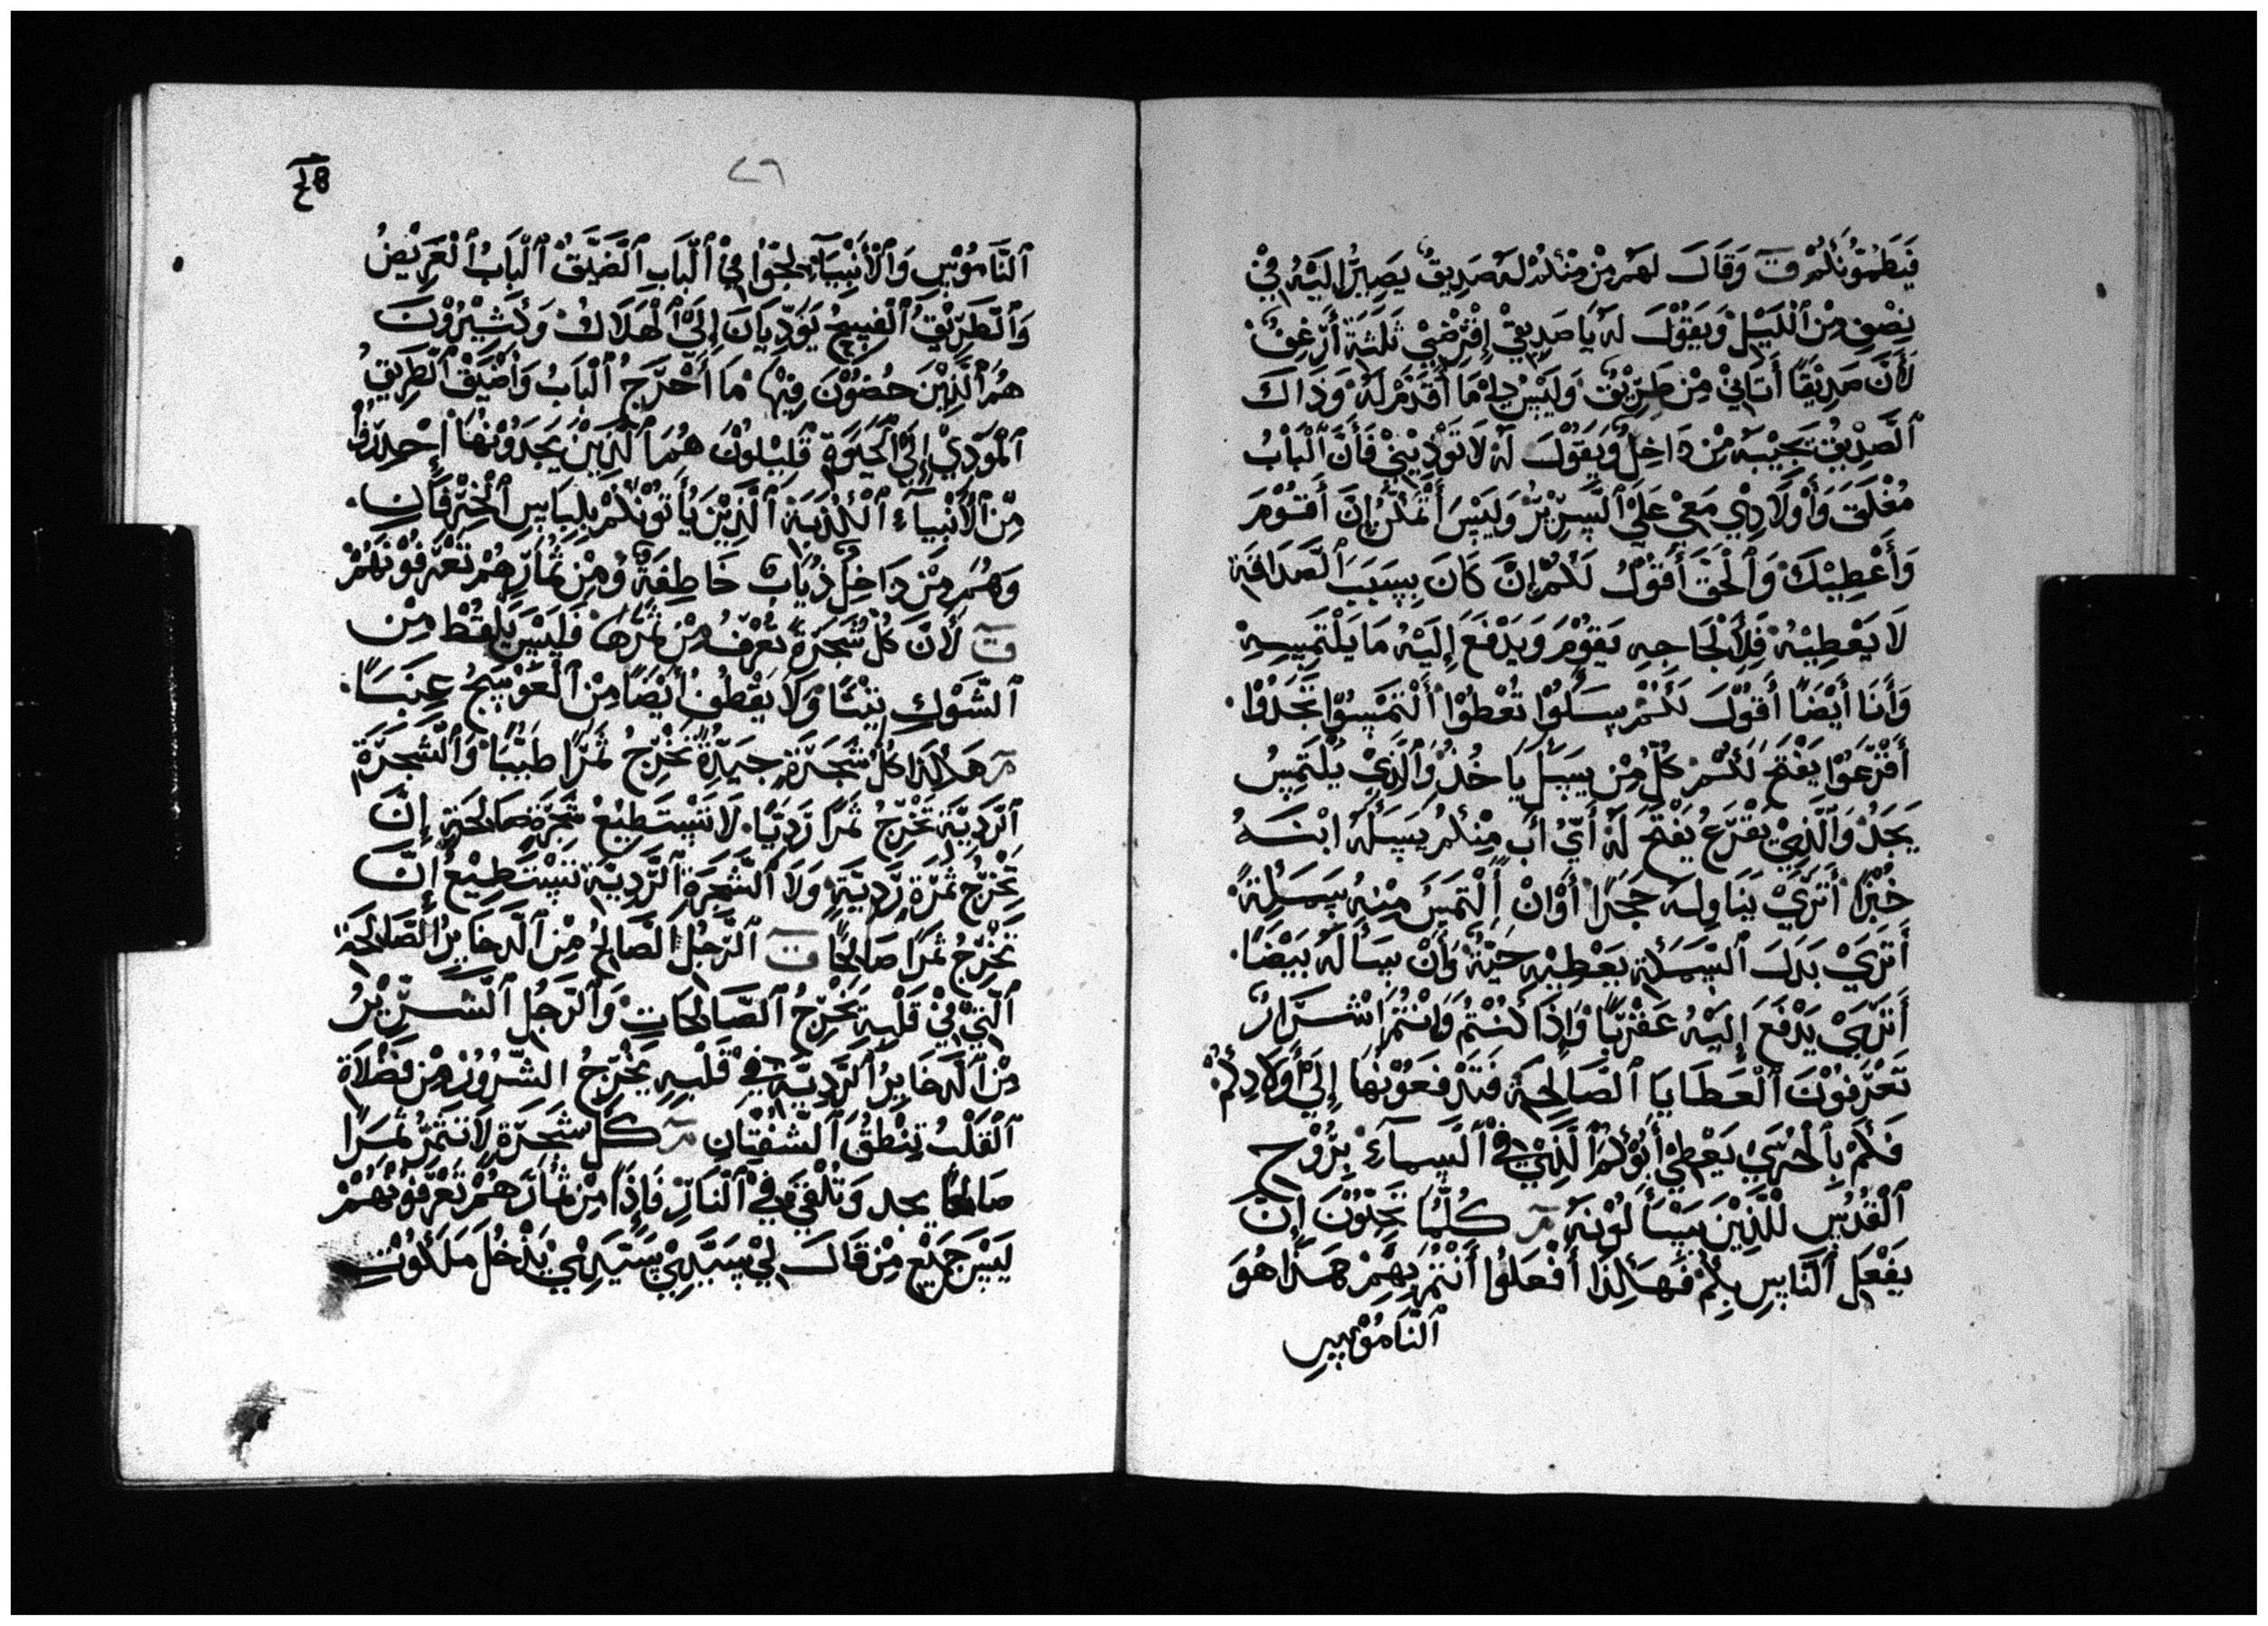 فَيَطْمِوْنَكُمْ ق وَقَالَ لَهُمْ مِنْ مِنْكُمْ لَهُ صَدِيقٌ يَصِيرُ إِلَيْهِ فِيْ
نِصْفِ مِنَ ٱللَّيْلِ وَيَقُوْلَ لَهُ يَا صَدِيقِيْ إِقْرِضْنِيْ ثَلَثَةَ أَرْغِفٌ
لَأَنَّ صَدِيْقًا أَتَانِيْ مِنْ طَرِيْقٌ وَلَيْسَ لِيْ مَا أُقَدِّمْ لَهُ وَذَاكَ
ٱلصَّدِيْقُ يَجِيْبَهُ مِنْ دَاخِلٌ وَيَقُوْلَ لَهُ لَا تُوَذِيْنِيْ فَأَنَّ ٱلْبَابُ
مُغْلَقَ وَأَوْلَادِيْ مَعِيْ عَلَيْ ٱلسَّرِيْرُ وَلَيْسَ أَتَمَكَّنُ إِنَّ أَقُوْمَ
وَأُعْطِيْكَ وَٱلْحَقَّ أَقُوْلُ لَكُمْ إِنَّ كَانَ بِسَبَبَ ٱلصَّدَاقَةِ
لَا يَعْطِيْهُ فَلِأَلْجَاجِهِ يَقُوْمَ وَيَدْفَعَ إِلَيْهُ مَا يَلْتَمِسِهِ
وَأَنَا أَيْضًا أَقُوْلَ لَكُمْ سَلُوْا تُعْطَوْا أَلْتَمْسِوْا تَجَدُوْا
أَقْرَعُوْا يَفْتَحَ لَكُمْ كُلُّ مِنْ يِسَلْ يَاخُذْ وَٱلَّذِيْ يَلْتَمِسُ
يَجَدْ وَٱلَّذِيْ يَقْرَعُ يَفْتَحَ لَهُ أَيُّ أَبٍ مِنْكُمْ يَسَلَهُ ابْنَهُ
خُبْزًا أَتَرَيْ يَنَاوِلَهُ حَجَرًا أَوْانْ إِلْتَمَسَ مِنْهُ سَمَكَةً
أَتَرَيْ بَدَلَ ٱلسَّمَكَةِ يَعْطِيْهِ حَيْةٌ وَأَنْ سَأَلَهُ بَيْضًا
أَتَرَيْ يَدْفَعَ إِلَيْهُ عَقْرَبًا وَإِذَا كُنْتُمْ وَانْتُمْ اشْرَارٌ
تَعْرَفُوْنَ ٱلْعَطَايَا ٱلصَّالِحَةِ فَتَدْفَعُوْنَهَا إِلَيْ أَوْلَادِكُمْ
فَكَمْ بِٱلْحَرِيْ يَعْطِيْ أَبُوْكُمْ ٱلَّذِيْ فِيْ ٱلسَّمَآءِ بِرُوْحِ
ٱلْقُدُسِ لِلَّذِيْنَ يَسْأَلُوْنَهُ مر كُلَّمَا تَحِبُّوْنَ إِنَّ
يَفْعَلَ ٱلنَّاسِ بِكُمْ فَهَكِذَا أَفْعَلُوْا أَنْتُمْ بِهَمْ هَذَا هُوَ
ٱلنَّامُوْسِ
٢٦
ٱلنَّامُوْسِ وَٱلْأَنْبِيَآءِ لِجُوْا فِيْ ٱلْبَابِ ٱلْضَيِّقُ ٱلْبَابُ ٱلْعَرِيْضُ
وَٱلطَّرِيْقُ ٱلْفَسِيْحُ يُوَدِّيَانَ إِلَيْ ٱلْهَلَاكُ وَكَثِيْرُوْنَ
هُمْ ٱلَّذِيْنَ حُضُوْنَ فِيْهَا مَا أَحْرَجُ ٱلْبَابُ وَأَضْيَقْ ٱلْطَرِيقُ
ٱلْمُوَدِّيْ إِلَيْ ٱلْحَيَوَةِ قَلِيْلُوْنَ هُمَ ٱلَّذِيْنَ يَجَدُوْنَهَا إِحْدَرُوْا
مِنْ ٱلْأَنْبِيَآءِ ٱلْكَذَبَةِ ٱلَّذِيْنَ يَأَتُوْنَكُمْ بِلِبَاسِ ٱلْخِرْفَانِ
وَهُمْ مِنْ دَاخِلْ ذِيَابٌ خَاطِفَةٌ وَمِنْ ثِمَارِهِمْ تَعْرَفُوْنَهُمْ
ق لَأَنَّ كُلْ شَجَرَةٌ تُعْرَفُ مِنْ ثَمَرَهَا فَلَيْسَ يَلْقُطْ مِنْ
ٱلشَّوْكِ تِيْنًا وَلَا يَقْطُفُ أَيْضًا مِنْ ٱلْعَوْسِجُ عِنَبًا
مر هَكَذَا كُلْ شَجَرَةٍ جَيِّدَةٌ تَخْرَجُ ثَمَرًا طَيِّبًا وَٱلشَّجَرَةَ
ٱلرَّدِيَّةَ تَخْرَجُ ثَمَرًا رَدِيًّا لَا تَسْتَطِيْعُ شَجَرَةٌ صَالِحَةٍ إِنَّ
تَخْرَجُ ثَمَرَةٍ رَدِيَّةٍ وَلَا ٱلشَّجَرَةِ ٱلرَّدِيْةِ تَسْتَطِيْعُ إِنَّ
تَخْرَجُ ثَمَرًا صَالِحًا ق ٱلرَّجُلْ ٱلصَّالِحُ مِنْ ٱلذَخَايِرُ ٱلصَّالِحَةِ
ٱلَّتِيْ فِيْ قَلْبِهِ يَخْرَجُ ٱلصَّالِحَاتِ وَٱلرَّجُلْ ٱلشَّرِيْرُ
مِنْ ٱلذَخَايِرُ ٱلرَّدِيَّةِ فِيْ قَلْبِهِ يَخْرَجُ ٱلشِّرُوْرْ مِنْ فَضْلَاةِ
ٱلْقَلْبُ تِنْطَقُ ٱلشَّفَتَانِ مر كُلْ شَجَرَةٍ لَا تَثْمَرُ ثَمَرًا
صَالِحًا يجد وَتُلْقَيْ فِيْ ٱلْنَارِ فَإِذًا مِنْ ثَمَارَهُمْ تَعْرَفُوْنَهُمْ
لَيْسَ جَمِيْعْ مِنْ قَالَ لِيْ سَيِّدِيْ سَيِّدِيْ يَدْخُلْ مَلَكُوْتِ